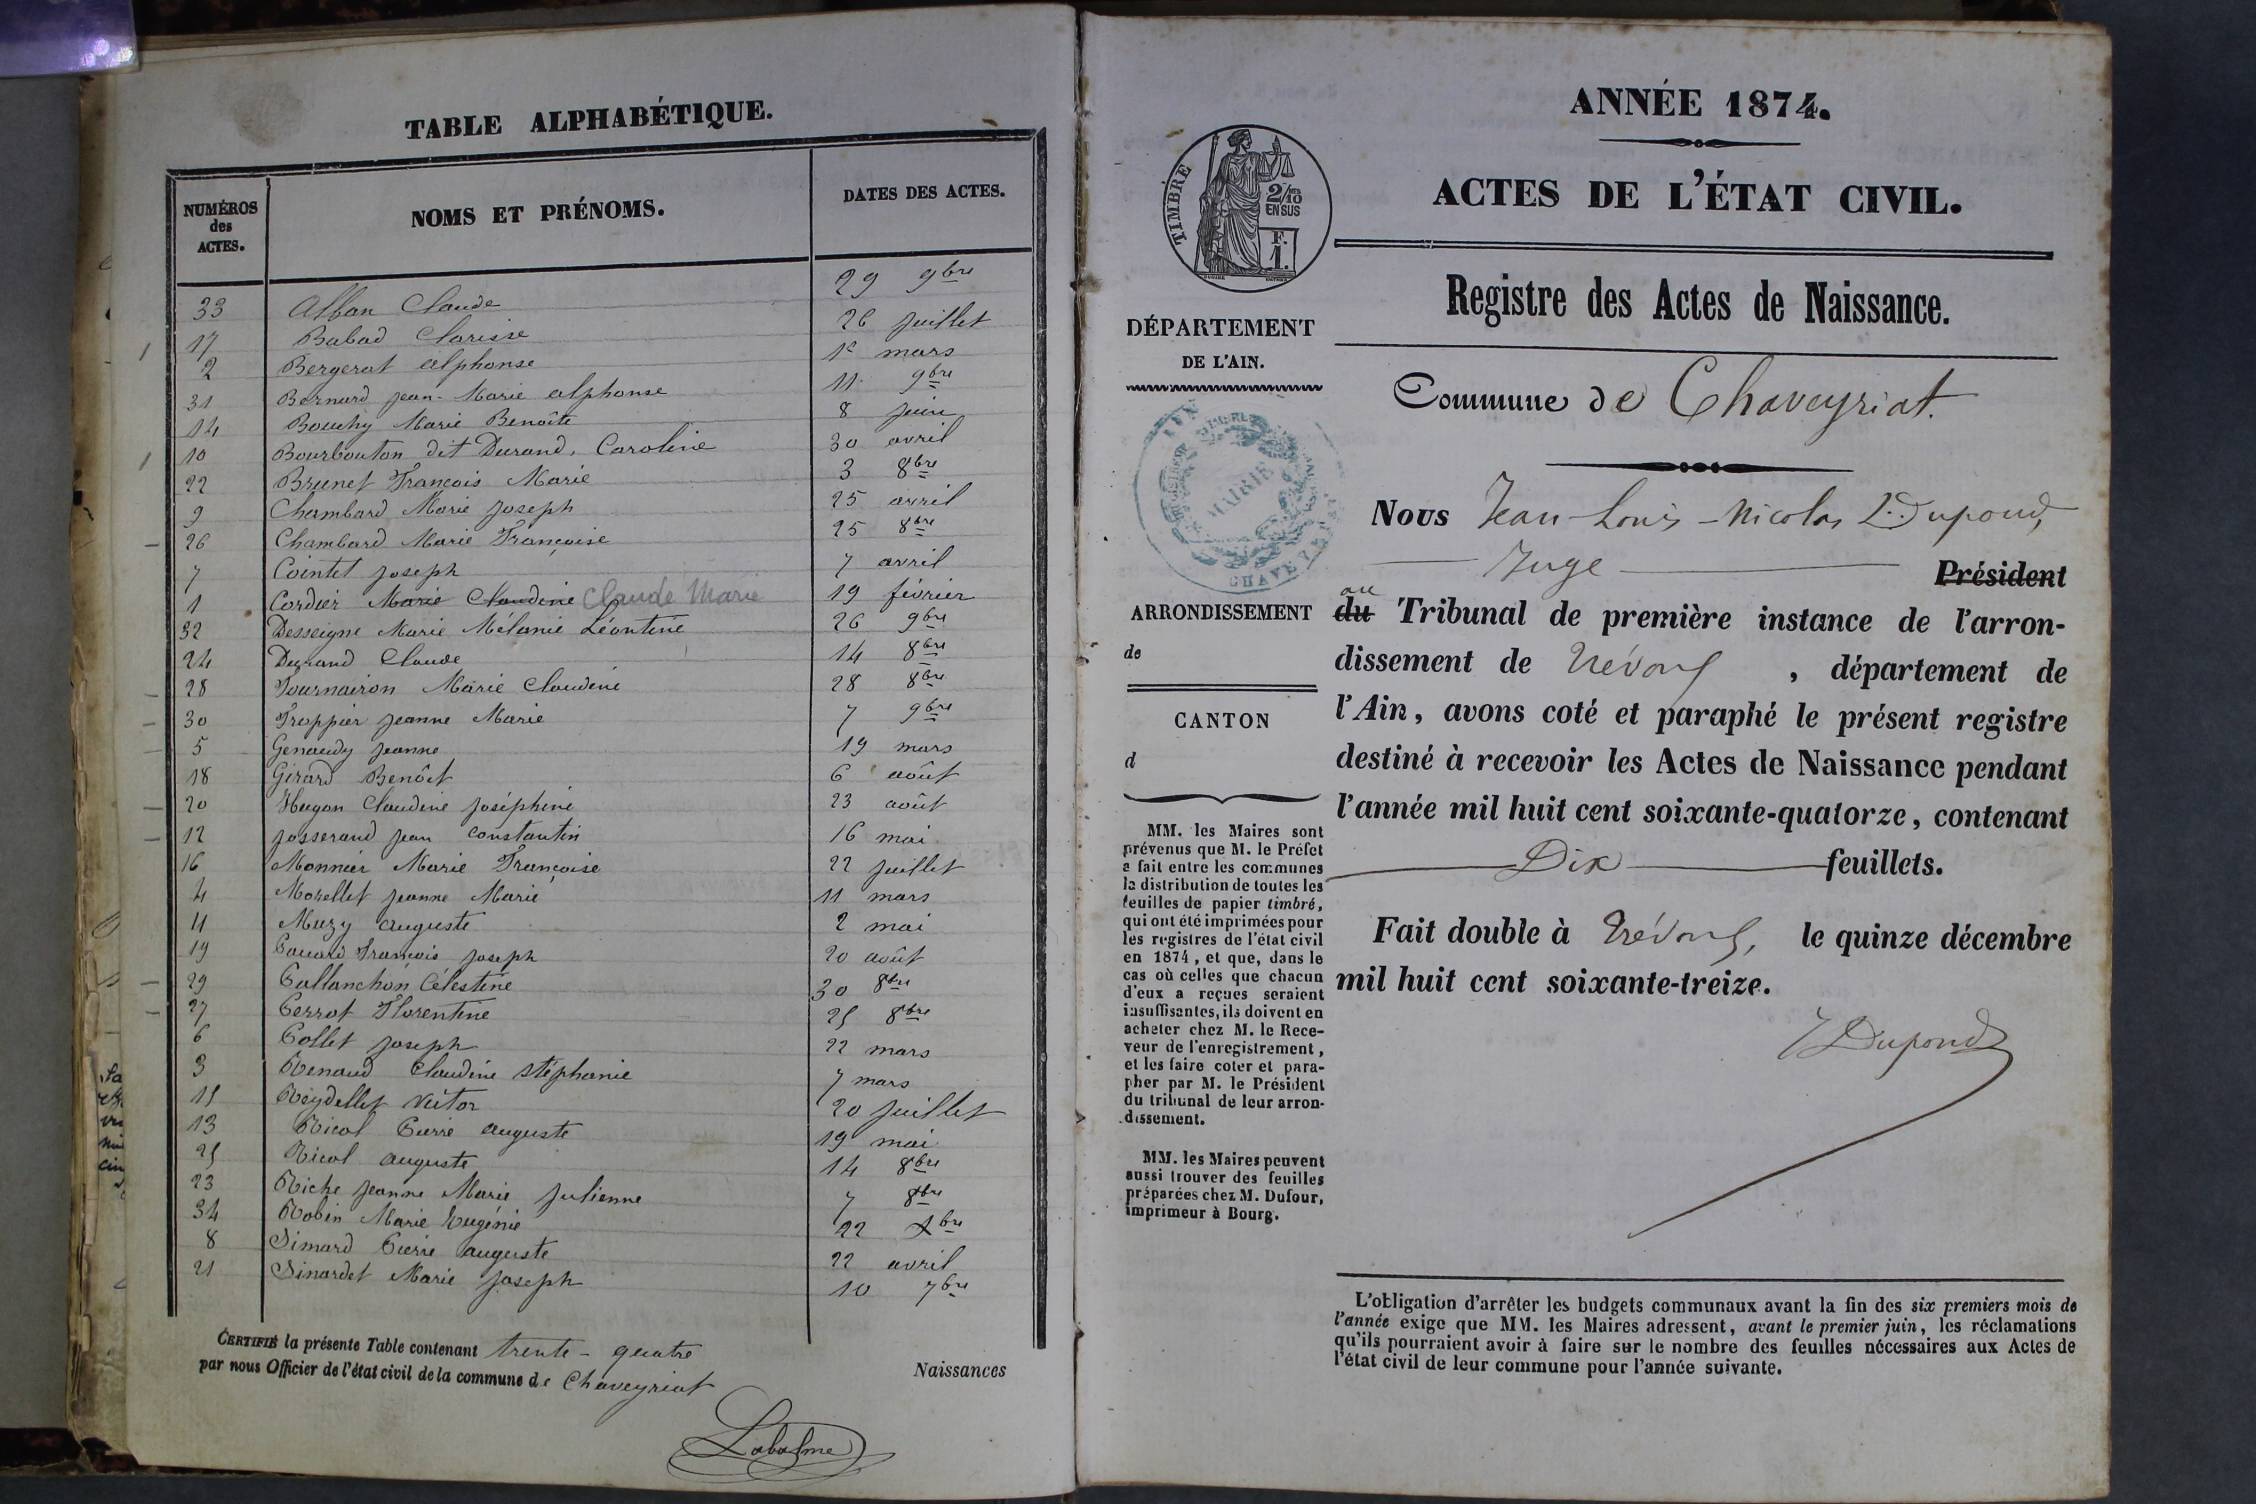 TABLE ALPHABÉTIQUE.
NUMÉROS des ACTES. NOMS ET PRÉNOMS. DATES DES ACTES.
33 Alban Claude 29 9bre
17 Babad Clarisse 26 juillet
2 Bergerat alphonse 1e mars
31 Bernard jean-Marie alphonse 11 9bre
14 Bouchy Marie Benoîte 8 juin
10 Bourbouton dit Durand, Caroline 30 avril
22 Brunet François Marie 3 8bre
9 Chambard Marie joseph 25 avril
26 Chambard Marie Françoise 25 8bre
7 Cointet joseph 7 avril
1 Cordier Marie Claudine Claude Marie 19 février
32 Desseigne Marie Mélanie Léontine 26 9bre
24 Durand Claude 14 8bre
28 Fournairon Marie Claudine 28 8bre
30 Froppier jeanne Marie 7 9bre
5 Genaudy jeanne 19 mars
18 Girard Benôit 6 août
20 Hugon Claudine joséphine 23 août
12 josserand jean constantin 16 mai
16 Monnier Marie Françoise 22 juillet
4 Morellet jeanne Marie 11 mars
11 Muzy auguste 2 mai
19 François joseph 20 août
29 Pallanchon Célestine 30 8bre
27 Perrot Florentine 25 8bre
6 Pollet joseph 22 mars
3 Renaud Claudine stéphanie 7 mars
15 Reydellet Victor 20 juillet
13 Ricol Pierre auguste 19 mai
25 Ricol auguste 14 8bre
23 Riche jeanne Marie julienne 7 8bre
34 Robin Marie Eugénie 22 Xbre
8 Simard Pierre auguste 22 avril
21 Sinardet Marie joseph 10 7bre
CERTIFIÉ la présente Table contenant trente-quatre Naissances
par nous Officier de l'état civil de la commune de Chaveyriat
Labalme
ANNÉE 1874.
ACTES DE L'ÉTAT CIVIL.
TIMBRE
2/10
EN SUS
F.
1.
Registre des Actes de Naissance.
DÉPARTEMENT
DE L'AIN.
Commune de Chaveyriat.
MAIRIE
CHAVEYRIAT
Nous Jean-Louis-Nicolas Dupond,
Juge Président
ARRONDISSEMENT
de
CANTON
d
du au Tribunal de première instance de l'arron-
dissement de Trévoux, département de
l'Ain, avons coté et paraphé le présent registre
destiné à recevoir les Actes de Naissance pendant
l'année mil huit cent soixante-quatorze, contenant
Dix feuillets.
Fait double à Trévoux, le quinze décembre
mil huit cent soixante-treize.
Dupond
MM. les Maires sont
prévenus que M. le Préfet
a fait entre les communes
la distribution de toutes les
feuilles de papier timbré,
qui ont été imprimées pour
les registres de l'état civil
en 1874, et que, dans le
cas où celles que chacun
d'eux a reçues seraient
insuffisantes, ils doivent en
acheter chez M. le Rece-
veur de l'enregistrement,
et les faire coter et para-
pher par M. le Président
du tribunal de leur arron-
dissement.
MM. les Maires peuvent
aussi trouver des feuilles
préparées chez M. Dufour,
imprimeur à Bourg.
L'obligation d'arrêter les budgets communaux avant la fin des six premiers mois de
l'année exige que MM. les Maires adressent, avant le premier juin, les réclamations
qu'ils pourraient avoir à faire sur le nombre des feuilles nécessaires aux Actes de
l'état civil de leur commune pour l'année suivante.